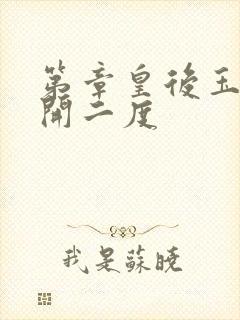 第章皇後玉
開二度
我是蘇曉